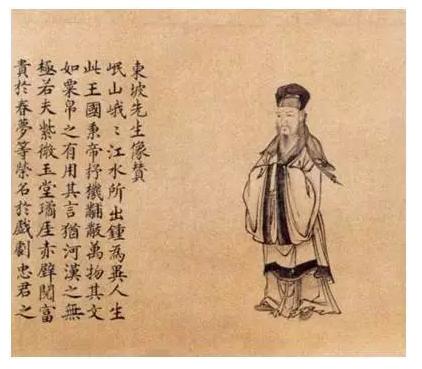 東坡先生像贊
岷山峨〻江水所出鍾為異人生
此王國秉帝杼機黼黻萬物其文
如粟帛之有用其言猶河漢之無
極若夫紫微玉堂瓊厓赤壁閱富
貴於春夢等榮名於戲劇忠君之